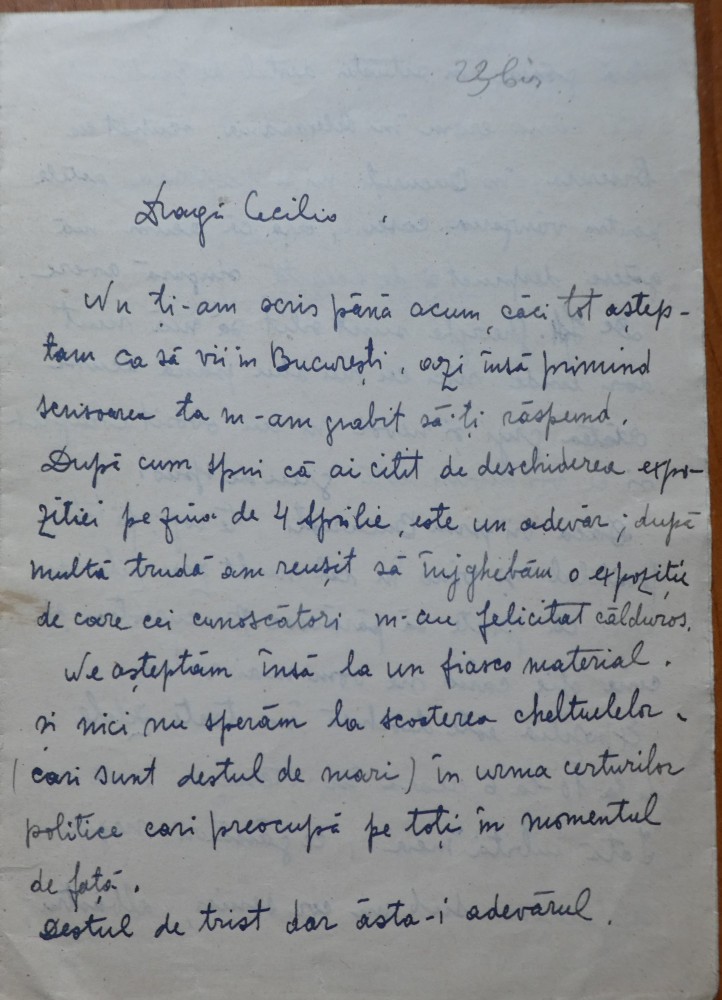 23 bis
Dragă Cecilia,
Nu ți-am scris până acum, căci tot aștep-
tam ca să vii în București, azi însă primind
scrisoarea ta m-am grabit să-ți răspund.
După cum spui că ai citit de deschiderea expo-
ziției pe ziua de 4 Aprilie, este un adevăr; după
multă trudă am reușit să înjghebăm o expoziție
de care cei cunoscători m-au felicitat călduros.
Ne așteptăm însă la un fiasco material.
și nici nu sperăm la scoaterea cheltuelelor,
(cari sunt destul de mari) în urma certurilor
politice cari preocupă pe toți în momentul
de față.
Destul de trist dar ăsta-i adevărul.